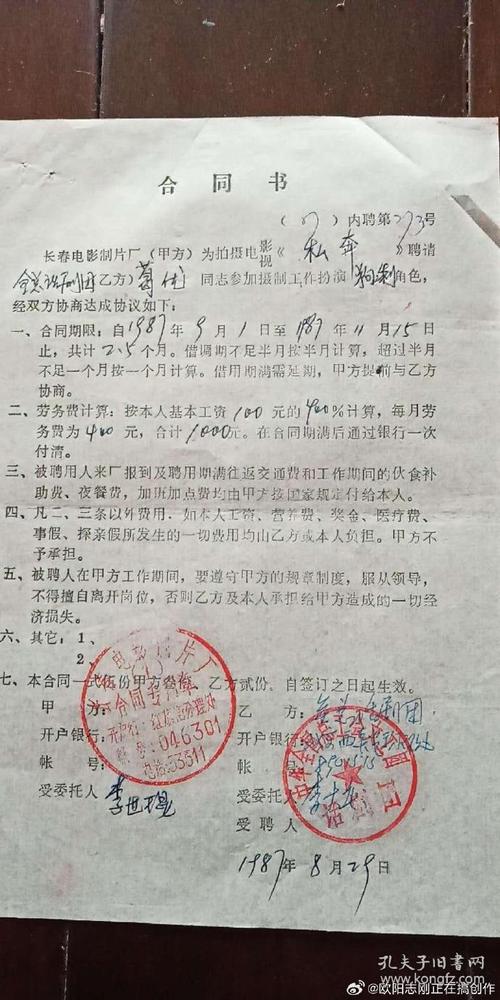 合同书
(87)内聘第273号
长春电影制片厂(甲方)为拍摄电影视《私奔》聘请
全总话剧团乙方)葛优同志参加摄制工作扮演狗剩角色,
经双方协商达成协议如下:
一、合同期限:自1987年9月1日至1987年11月15日
止,共计2.5个月。借调期不足半月按半月计算,超过半月
不足一个月按一个月计算。借用期满需延期,甲方提前与乙方
协商。
二、劳务费计算:按本人基本工资100元的400%计算,每月劳
务费为400元,合计1000元。在合同期满后通过银行一次
付清。
三、被聘用人来厂报到及聘用期满往返交通费和工作期间的伙食补
助费、夜餐费,加班加点费均由甲方按国家规定付给本人。
四、凡二、三条以外费用.如本人工资、营养费、奖金、医疗费、
事假、探亲假所发生的一切费用均由乙方或本人负担。甲方不
予承担。
五、被聘人在甲方工作期间,要遵守甲方的规章制度,服从领导,
不得擅自离开岗位,否则乙方及本人承担给甲方造成的一切经
济损失。
六、其它:1、
2、
七、本合同一式伍份甲方叁份,乙方贰份,自签订之日起生效。
甲方: 乙方:全总话剧团
开户银行: 开户银行:
帐号: 帐号:
受委托人 李世琨 受委托人
受聘人
电影制片厂
合同专用章
046301
电话53311
话剧团
1987年8月29日
孔夫子旧书网
@欧阳志刚正在搞创作